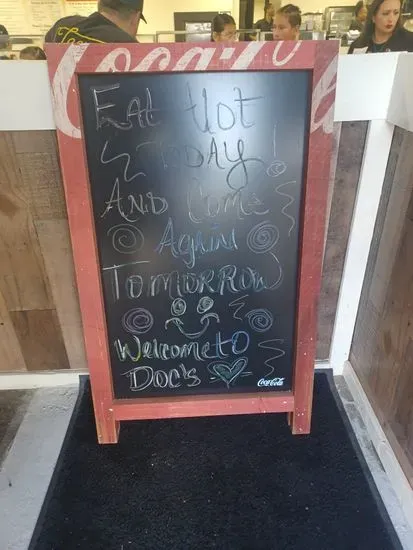 Coca-Cola
Eat Hot
Today!
And Come
Again
Tomorrow
Welcome to
Doc's
Coca-Cola